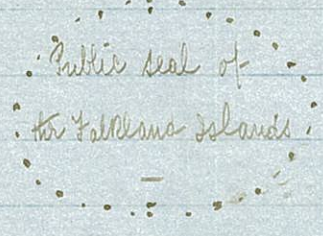 Public seal of
the Falkland Islands